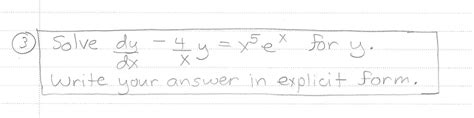 ③ Solve dy/dx - 4/x y = x⁵eˣ for y.
Write your answer in explicit form.